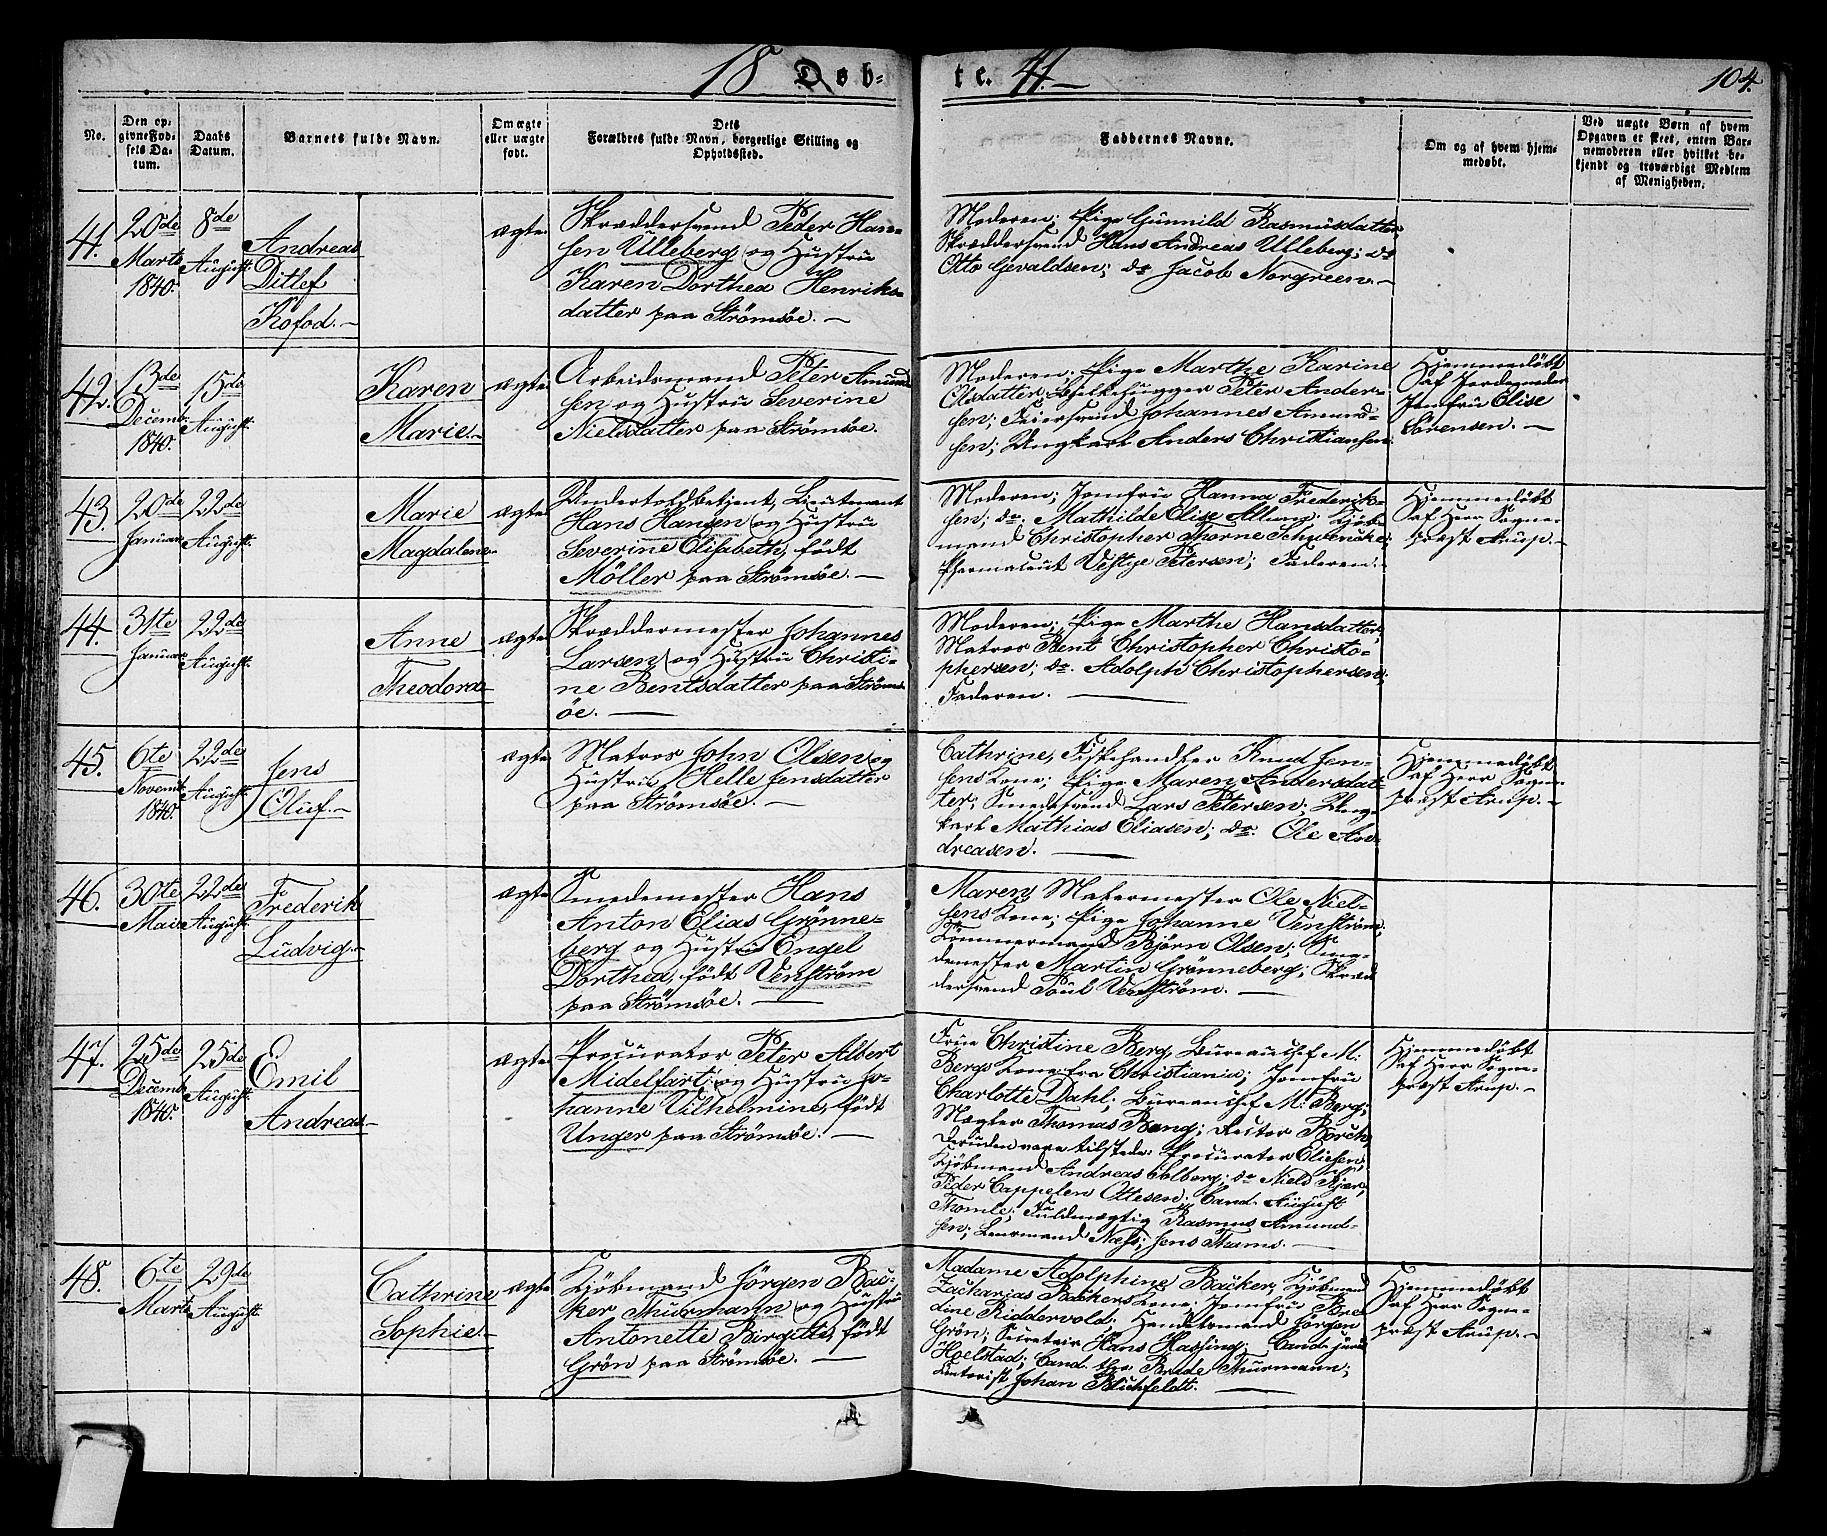 18 Døb-
te. 41.
104.
No.
Den op-
givne Fød-
sels Da-
tum.
Daabs
Datum.
Barnets fulde Navn.
Om ægte
eller uægte
født.
Dets
Forældres fulde Navn, borgerlige Stilling og
Opholdssted.
Faddernes Navne.
Om og af hvem hjem-
medøbt.
Ved uægte Børn af hvem
Opgaven er skeet, enten Bar-
nemoderen eller hvilket be-
kjendt og troværdigt Medlem
af Menigheden.
41.
20de
Marts
1840.
8de
August.
Andreas
Ditlef
Kofod.
ægte
Skræddersvend Peder Han-
sen Ulleberg og Hustru
Karen Dorthea Henriks-
datter paa Strømsøe.
Moderen; Pige Gunnild Rasmusdatter,
Skræddersvend Hans Andreas Ulleberg; do
Otto Gevaldsen; do Jacob Norgreen.
42.
13de
Decemb.
1840.
15de
August.
Karen
Marie.
ægte
Arbeidsmand Peter Amund-
sen og Hustru Severine
Nielsdatter paa Strømsøe.
Moderen; Pige Marthe Karine
Olsdatter; Peter Ander-
sen; Feiersvend Johannes Amund-
sen; Ungkarl Anders Christiansen.
Hjemmedøbt
af Jordemoder
Jomfru Elise
Sørensen.
43.
20de
Januar.
22de
August.
Marie
Magdalena
ægte
Undertoldbetjent, Lieutenant
Hans Hansen og Hustru
Severine Elisabeth, født
Möller paa Strømsøe.
Moderen; Jomfru Hanna Frederik-
sen; do. Mathilde Elise; Kjøb-
mand Christopher Thorne;
Pharmaceut Petersen; Faderen.
Hjemmedøbt
af Herr Sogne-
præst Arup.
44.
31te
Januar
22de
August.
Anne
Theodora
ægte
Skræddermester Johannes
Larsen og Hustru Christi-
ne Bentsdatter paa Strøms-
øe.
Moderen; Pige Marthe Hansdatter,
Matros Bent Christopher Christo-
phersen; do. Adolph Christophersen;
Faderen.
45.
6te
Novemb.
1840.
22de
August.
Jens
Oluf.
ægte
Matros John Olsen og
Hustru Helle Jensdatter
paa Strømsøe.
Cathrine, Fiskehandler Knud Jen-
sens Kone; Pige Maren Andersdat-
ter; Smedesvend Lars Petersen; Ung-
karl Mathias Eliasen; do. Ole An-
dreasen.
Hjemmedøbt
af Herr Sogne-
præst Arup.
46.
30te
Mai
22de
August.
Frederik
Ludvig.
ægte
Smedemester Hans
Anton Elias Grönne-
berg og Hustru Engel
Dorthea, født Venström
paa Strømsøe.
Maren, Malermester Ole Niel-
sens Kone; Pige Johanne Venström;
Tømmermand Bjørn Olsen; Sme-
demester Martin Grönneberg; Skræd-
dersvend Poul Venström.
47.
25de
Decemb.
1840.
25de
August.
Emil
Andreas
ægte
Procurator Peter Albert
Midelfart og Hustru Jo-
hanne Vilhelmine, født
Unger paa Strømsøe.
Frue Christine Berg, Bureauchef M.
Bergs Kone fra Christiania; Jomfru
Charlotte Dahl; Bureauchef M. Berg;
Mægler Thomas Bang; Rector Borch,
Desuden vare tilstede: Procurator Eliesen,
Kjøbmand Andreas Solberg; do Niels Kjær,
Peder Cappelen Ottesen; Cand. August
Thomle; Fuldmægtig Rasmus Amund-
sen; Næss; Jens Thams.
Hjemmedøbt
af Herr Sogne-
præst Arup.
48.
6te
Marts
29de
August.
Cathrine
Sophie.
ægte
Kjøbmand Jörgen Bac-
ker Thurmann og Hustru
Antonette Birgitte, født
Grön paa Strømsøe.
Madame Adolphine Backer, Kjøbmand
Zacharias Backers Kone; Jomfru Bre-
dine Riddervold; Handelsmand Jörgen
Grön; Secretair Hans Hassing; Cand. juris
Hoelstad; Cand. the. Bredde Thurmann;
Johan Blichfeldt.
Hjemmedøbt
af Herr Sogne-
præst Arup.